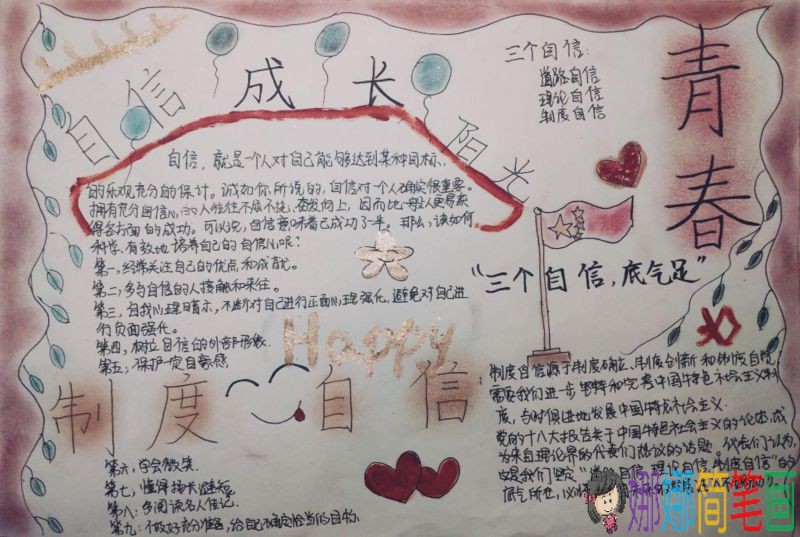 自信 成长 阳光
自信，就是一个人对自己能够达到某种目标，
的乐观充分的保计。诚如你所说的，自信对一个人确实很重要。
拥有充分自信心的人往往不屈不挠，奋发向上，因而比一般人更易获
得各方面的成功。可以说，自信意味着已成功了一半，那么，该如何
科学、有效地培养自己的自信心呢？
第一，经常关注自己的优点和成就。
第二，多与自信的人接触和来往。
第三，自我心理暗示，不断对自己进行正面心理强化，避免对自己进
行负面强化。
第四，树立自信的外部形象。
第五，保护一定自豪感
Happy
制度自信
第六，学会微笑。
第七，懂得扬长避短。
第八：多阅读名人传记。
第九：做好充分准备，给自己确定恰当的目标
三个自信：
道路自信
理论自信
制度自信
青春
“三个自信，底气足”
制度自信源于制度确立、制度创新和制度自觉，
需要我们进一步坚持和完善中国特色社会主义制
度，与时俱进地发展中国特色社会主义。
党的十八大报告关于中国特色社会主义的论述，成
为来自理论界的代表们热议的话题。代表们认为，
这是我们坚定“道路自信、理论自信、制度自信”的
底气所在，
娜娜简笔画